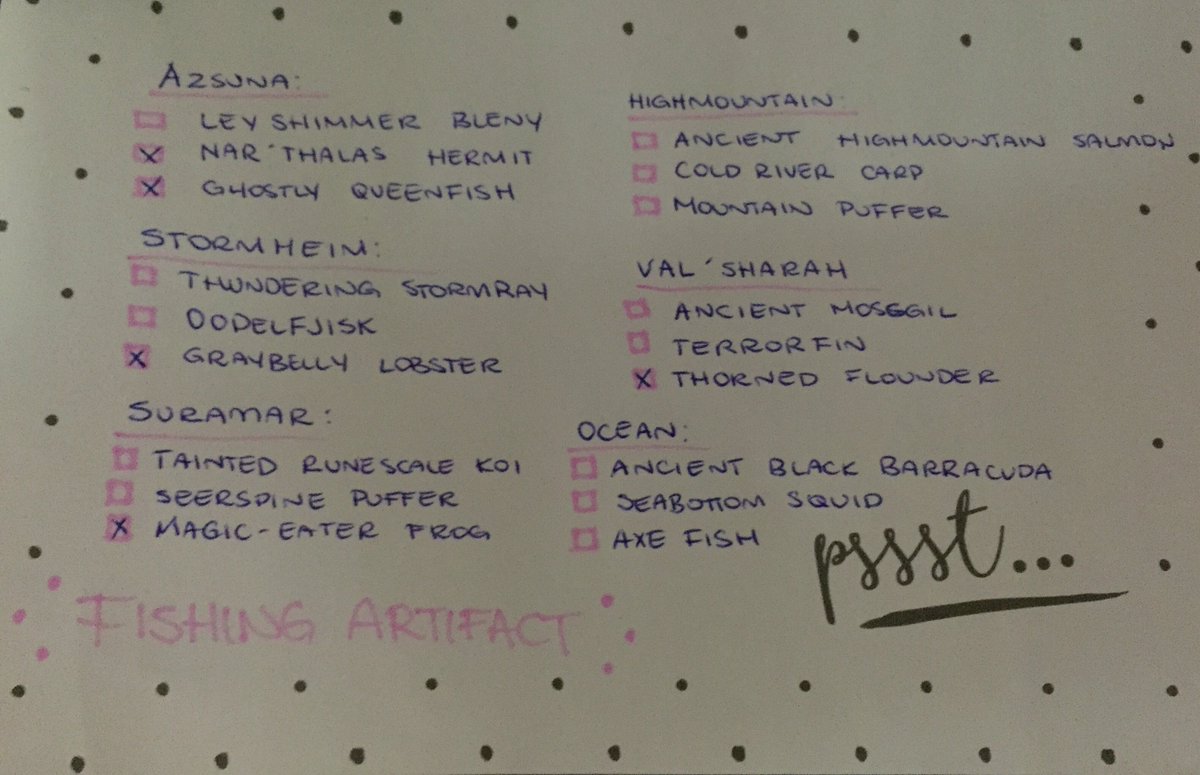 AZSUNA:
LEYSHIMMER BLENY
X NAR'THALAS HERMIT
X GHOSTLY QUEENFISH
STORMHEIM:
THUNDERING STORMRAY
OODELFJISK
X GRAYBELLY LOBSTER
SURAMAR:
TAINTED RUNESCALE KOI
SEERSPINE PUFFER
X MAGIC-EATER FROG
HIGHMOUNTAIN:
ANCIENT HIGHMOUNTAIN SALMON
COLDRIVER CARP
MOUNTAIN PUFFER
VAL'SHARAH
ANCIENT MOSSGIL
TERRORFIN
X THORNED FLOUNDER
OCEAN:
ANCIENT BLACK BARRACUDA
SEABOTTOM SQUID
AXE FISH
pssst...
FISHING ARTIFACT